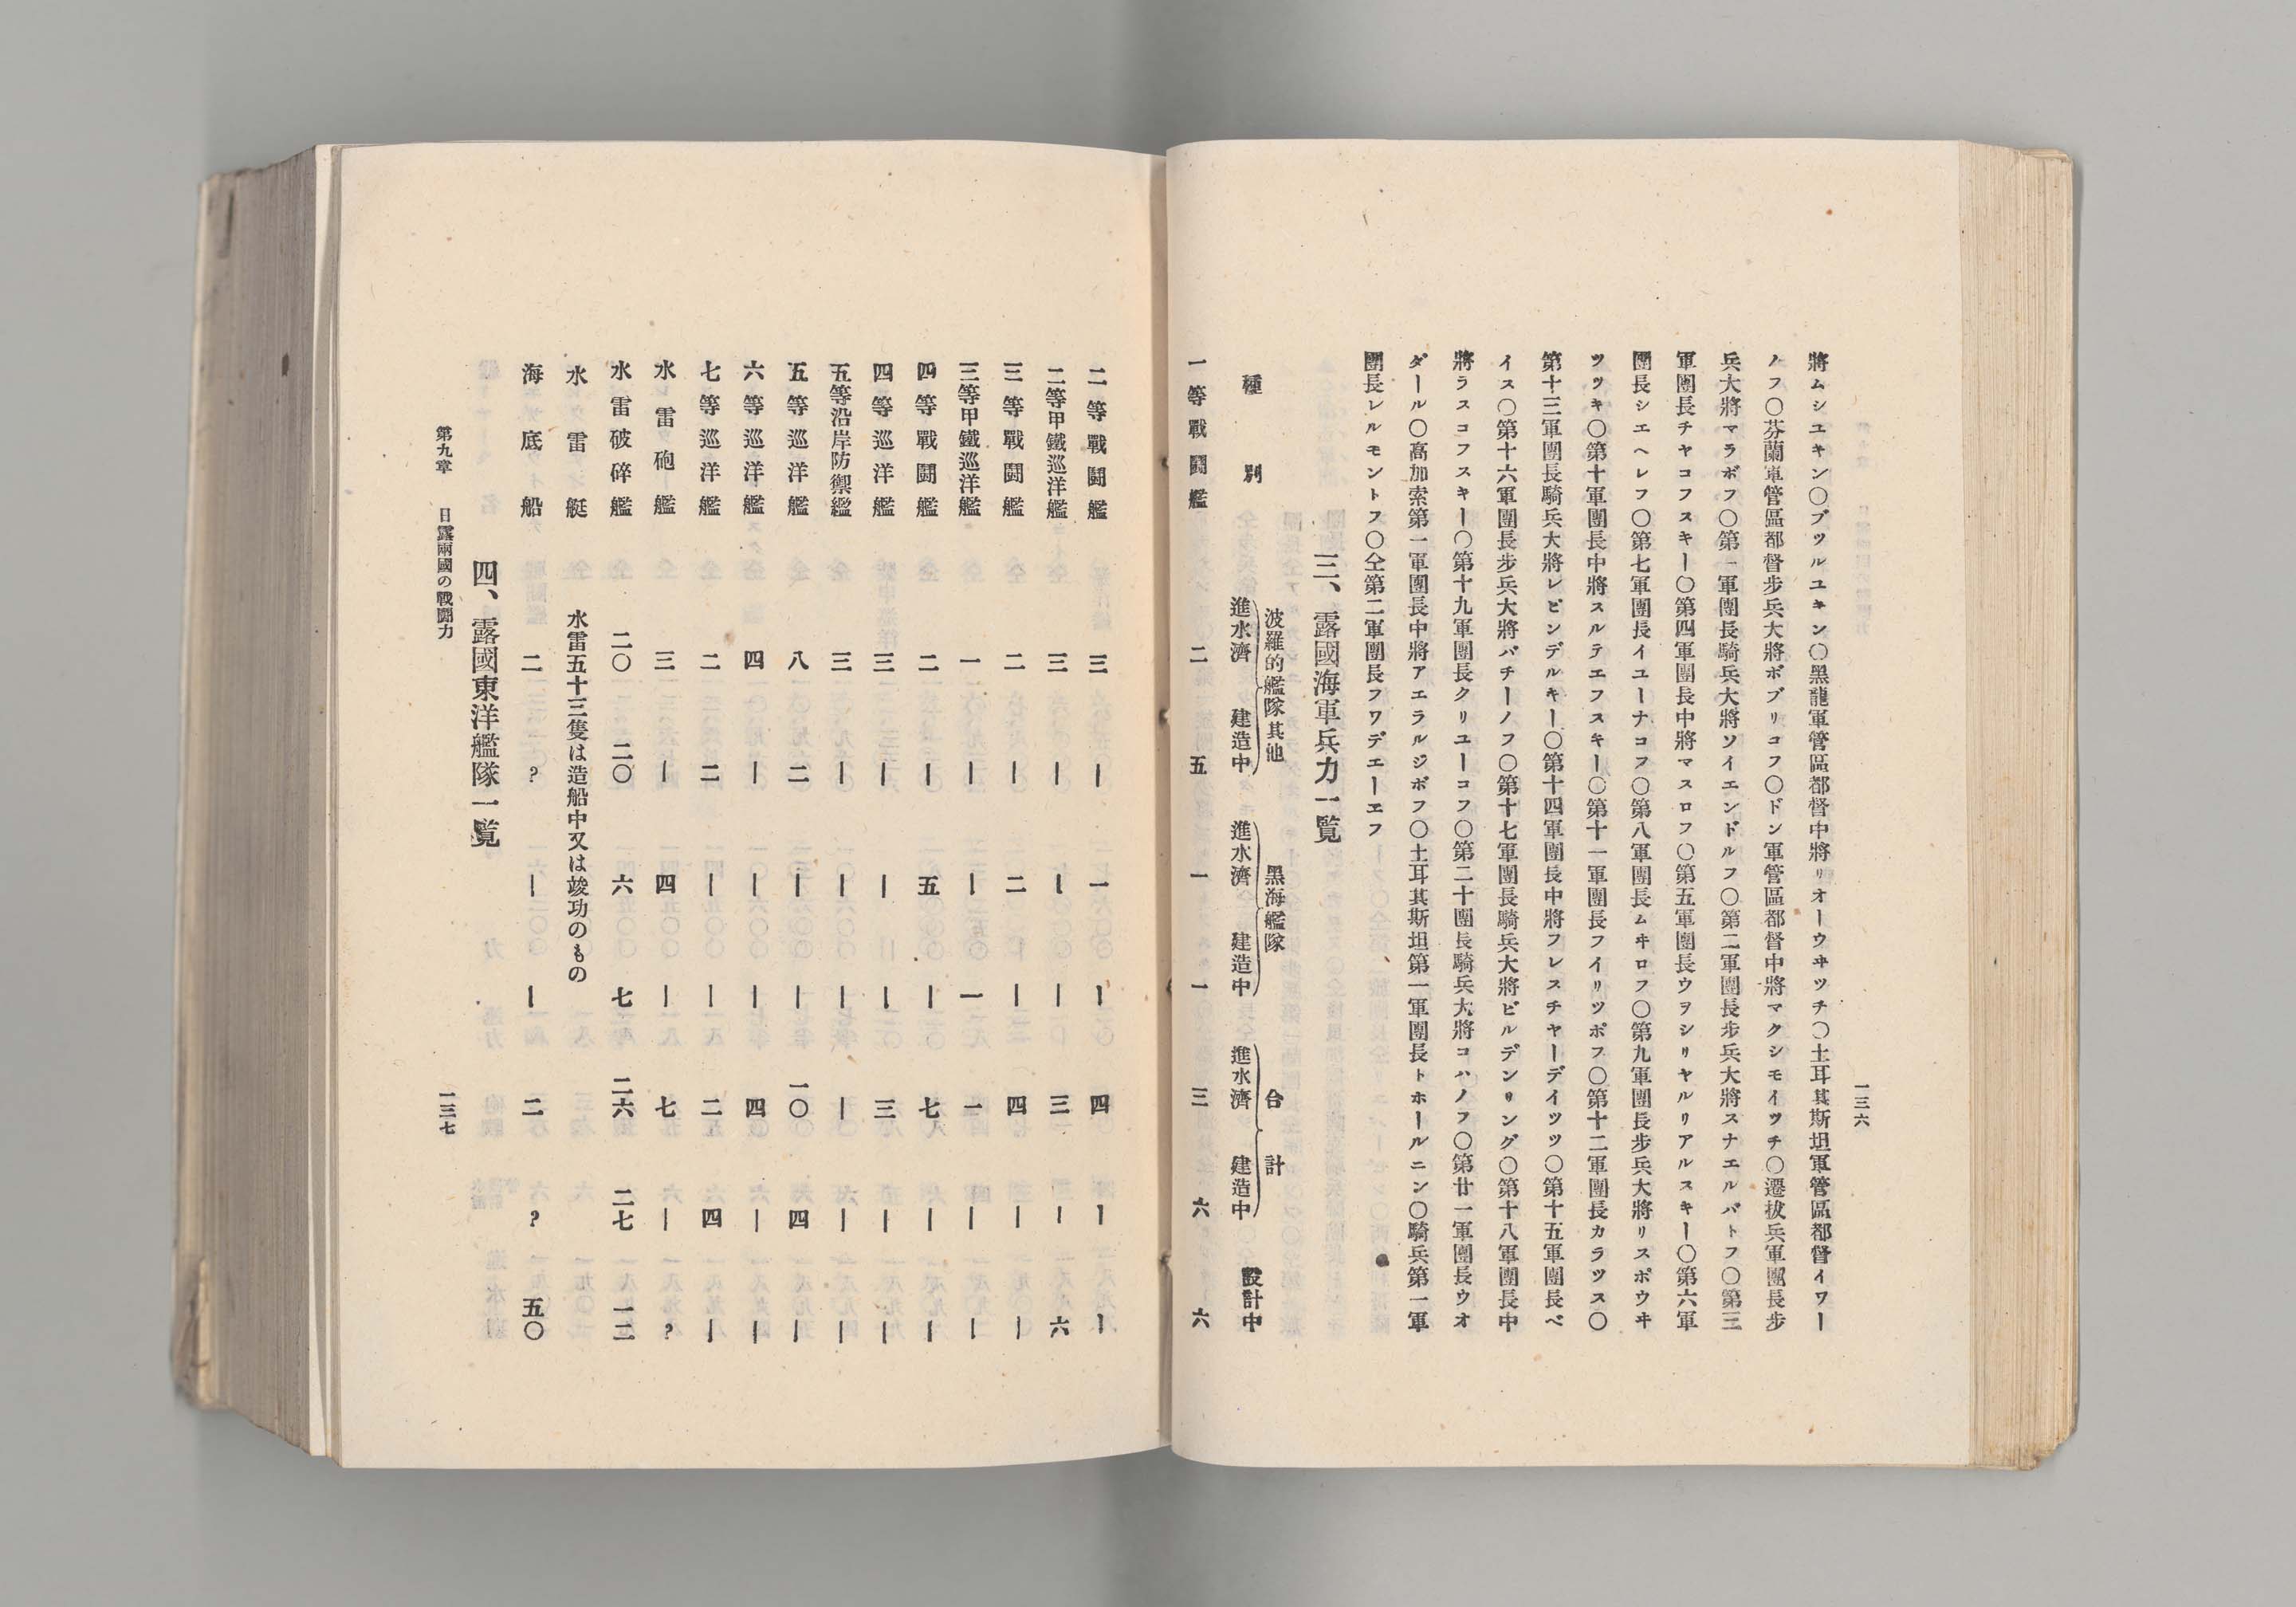 一三六
將ムシユキン〇ブツルユキン〇黑龍軍管區都督中將リオーウヰツチ〇土耳其斯坦軍管區都督イワー
ノフ〇芬蘭軍管區都督步兵大將ボブリコフ〇ドン軍管區都督中將マクシモイツチ〇遷拔兵軍團長步
兵大將マラボフ〇第一軍團長騎兵大將ソイエンドルフ〇第二軍團長步兵大將スナエルバトフ〇第三
軍團長チヤコフスキー〇第四軍團長中將マスロフ〇第五軍團長ウヲシリヤルリアルスキー〇第六軍
團長シエヘレフ〇第七軍團長イユーナコフ〇第八軍團長ムヰロフ〇第九軍團長步兵大將リスポウヰ
ツツキ〇第十軍團長中將スルテエフスキー〇第十一軍團長フイリツポフ〇第十二軍團長カラツス〇
第十三軍團長騎兵大將レビンデルキー〇第十四軍團長中將フレスチヤーデイツツ〇第十五軍團長ベ
イス〇第十六軍團長步兵大將バチーノフ〇第十七軍團長騎兵大將ビルデンリング〇第十八軍團長中
將ラスコフスキー〇第十九軍團長クリユーコフ〇第二十團長騎兵大將コハノフ〇第廿一軍團長ウオ
ダール〇高加索第一軍團長中將アエラルジボフ〇土耳其斯坦第一軍團長トホールニン〇騎兵第一軍
團長レルモントフ〇仝第二軍團長フワデエーエフ
三、露國海軍兵力一覧
波羅的艦隊其他 黑海艦隊 合計
種別 進水濟 建造中 進水濟 建造中 進水濟 建造中 設計中
一等戰鬪艦 二 五 一 一 三 六 六
二等戰鬪艦 三 ー ー ー 四 ー ー
二等甲鐵巡洋艦 三 ー ー ー 三 ー 六
三等戰鬪艦 二 ー 二 ー 四 ー ー
三等甲鐵巡洋艦 一 ー ー 一 一 ー ー
四等戰鬪艦 二 ー 五 ー 七 ー ー
四等巡洋艦 三 ー ー ー 三 ー ー
五等沿岸防禦艦 三 ー ー ー ー ー ー
五等巡洋艦 八 二 ー ー 一〇 四 ー
六等巡洋艦 四 ー ー ー 四 ー ー
七等巡洋艦 二 二 ー ー 二 四 ー
水雷砲艦 三 ー 四 ー 七 ー ?
水雷破碎艦 二〇 二〇 六 七 二六 二七 一二
水雷艇 水雷五十三隻は造船中又は竣功のもの
海底船 二 ? ー ー 二 ? 五〇
四、露國東洋艦隊一覧
第九章 日露兩國の戰鬪力 一三七